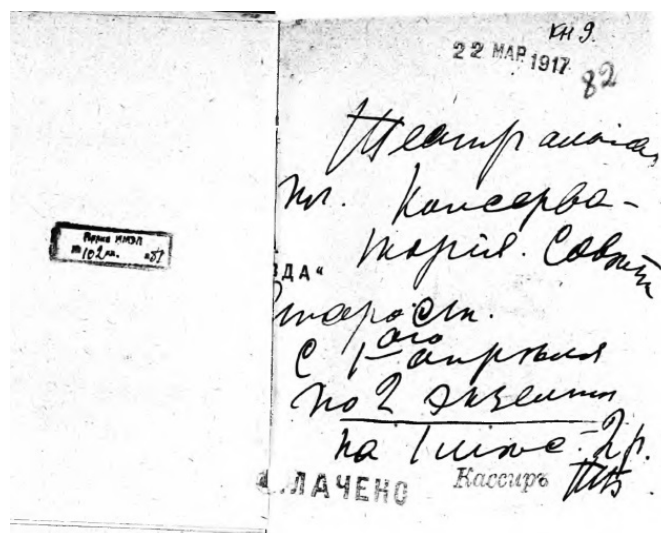 Фирма ИМЭЛ
№ 102 ин.
кн 9.
22 МАР. 1917
82
Театральная
пл. Консерва-
торія. Совѣт
ЗДА“
Старост.
с 1-аго апрѣля
по 2 экземпл
на 1 мѣс = 2 р.
ЛАЧЕНО Кассиръ